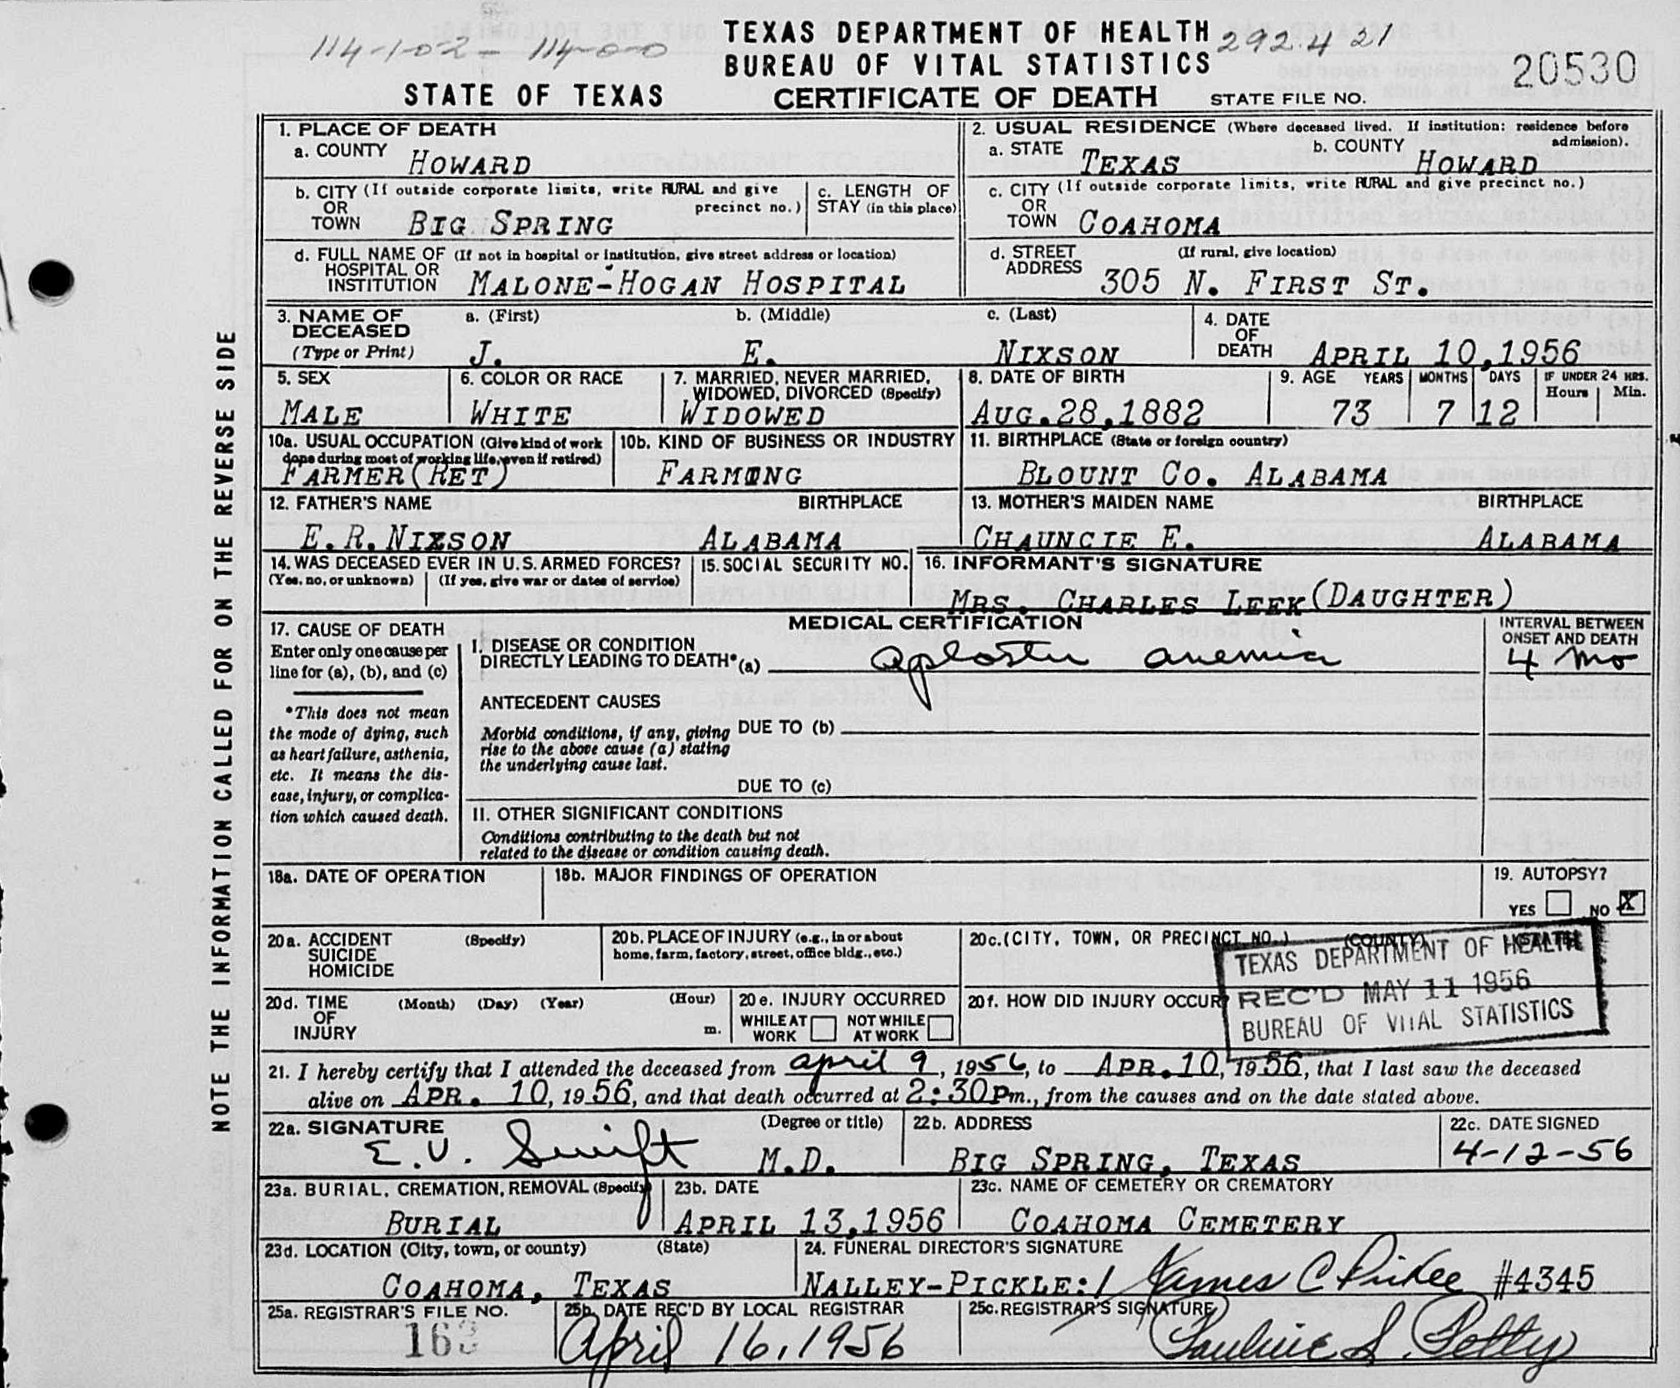 114-1-02- 114-0-0
TEXAS DEPARTMENT OF HEALTH
292.4 21
BUREAU OF VITAL STATISTICS
20530
STATE OF TEXAS
CERTIFICATE OF DEATH
STATE FILE NO.
NOTE THE INFORMATION CALLED FOR ON THE REVERSE SIDE
1. PLACE OF DEATH
a. COUNTY HOWARD
2. USUAL RESIDENCE (Where deceased lived. If institution: residence before admission).
a. STATE TEXAS b. COUNTY HOWARD
b. CITY (If outside corporate limits, write RURAL and give precinct no.)
OR
TOWN BIG SPRING
c. LENGTH OF
STAY (in this place)
c. CITY (If outside corporate limits, write RURAL and give precinct no.)
OR
TOWN COAHOMA
d. FULL NAME OF (If not in hospital or institution, give street address or location)
HOSPITAL OR
INSTITUTION MALONE-HOGAN HOSPITAL
d. STREET (If rural, give location)
ADDRESS 305 N. FIRST ST.
3. NAME OF DECEASED
(Type or Print)
a. (First) b. (Middle) c. (Last)
J. E. NIXSON
4. DATE
OF
DEATH APRIL 10,1956
5. SEX
MALE
6. COLOR OR RACE
WHITE
7. MARRIED, NEVER MARRIED,
WIDOWED, DIVORCED (Specify)
WIDOWED
8. DATE OF BIRTH
AUG.28,1882
9. AGE YEARS MONTHS DAYS IF UNDER 24 HRS.
Hours Min.
73 7 12
10a. USUAL OCCUPATION (Give kind of work
done during most of working life, even if retired)
FARMER(RET)
10b. KIND OF BUSINESS OR INDUSTRY
FARMING
11. BIRTHPLACE (State or foreign country)
BLOUNT CO. ALABAMA
12. FATHER'S NAME BIRTHPLACE
E.R.NIXSON ALABAMA
13. MOTHER'S MAIDEN NAME BIRTHPLACE
CHAUNCIE E. ALABAMA
14. WAS DECEASED EVER IN U.S. ARMED FORCES?
(Yes, no, or unknown) (If yes, give war or dates of service)
15. SOCIAL SECURITY NO.
16. INFORMANT'S SIGNATURE
MRS. CHARLES LEEK(DAUGHTER)
MEDICAL CERTIFICATION
17. CAUSE OF DEATH
Enter only one cause per
line for (a), (b), and (c)
*This does not mean
the mode of dying, such
as heart failure, asthenia,
etc. It means the dis-
ease, injury, or complica-
tion which caused death.
I. DISEASE OR CONDITION
DIRECTLY LEADING TO DEATH*(a) aplastic anemia
INTERVAL BETWEEN
ONSET AND DEATH
4 mo
ANTECEDENT CAUSES
Morbid conditions, if any, giving
rise to the above cause (a) stating
the underlying cause last.
DUE TO (b)
DUE TO (c)
II. OTHER SIGNIFICANT CONDITIONS
Conditions contributing to the death but not
related to the disease or condition causing death.
18a. DATE OF OPERATION
18b. MAJOR FINDINGS OF OPERATION
19. AUTOPSY?
YES NO X
20a. ACCIDENT (Specify)
SUICIDE
HOMICIDE
20b. PLACE OF INJURY (e.g., in or about
home, farm, factory, street, office bldg., etc.)
20c. (CITY, TOWN, OR PRECINCT NO.) (COUNTY) (STATE)
TEXAS DEPARTMENT OF HEALTH
REC'D MAY 11 1956
BUREAU OF VITAL STATISTICS
20d. TIME (Month) (Day) (Year) (Hour)
OF
INJURY m.
20e. INJURY OCCURRED
WHILE AT
WORK
NOT WHILE
AT WORK
20f. HOW DID INJURY OCCUR
21. I hereby certify that I attended the deceased from april 9, 1956, to APR.10, 1956, that I last saw the deceased
alive on APR. 10, 1956, and that death occurred at 2:30Pm., from the causes and on the date stated above.
22a. SIGNATURE (Degree or title)
E.V. Swift M.D.
22b. ADDRESS
BIG SPRING, TEXAS
22c. DATE SIGNED
4-12-56
23a. BURIAL, CREMATION, REMOVAL (Specify)
BURIAL
23b. DATE
APRIL 13,1956
23c. NAME OF CEMETERY OR CREMATORY
COAHOMA CEMETERY
23d. LOCATION (City, town, or county) (State)
COAHOMA, TEXAS
24. FUNERAL DIRECTOR'S SIGNATURE
NALLEY-PICKLE: James C Pickle #4345
25a. REGISTRAR'S FILE NO.
163
25b. DATE REC'D BY LOCAL REGISTRAR
April 16, 1956
25c. REGISTRAR'S SIGNATURE
Pauline S. Petty